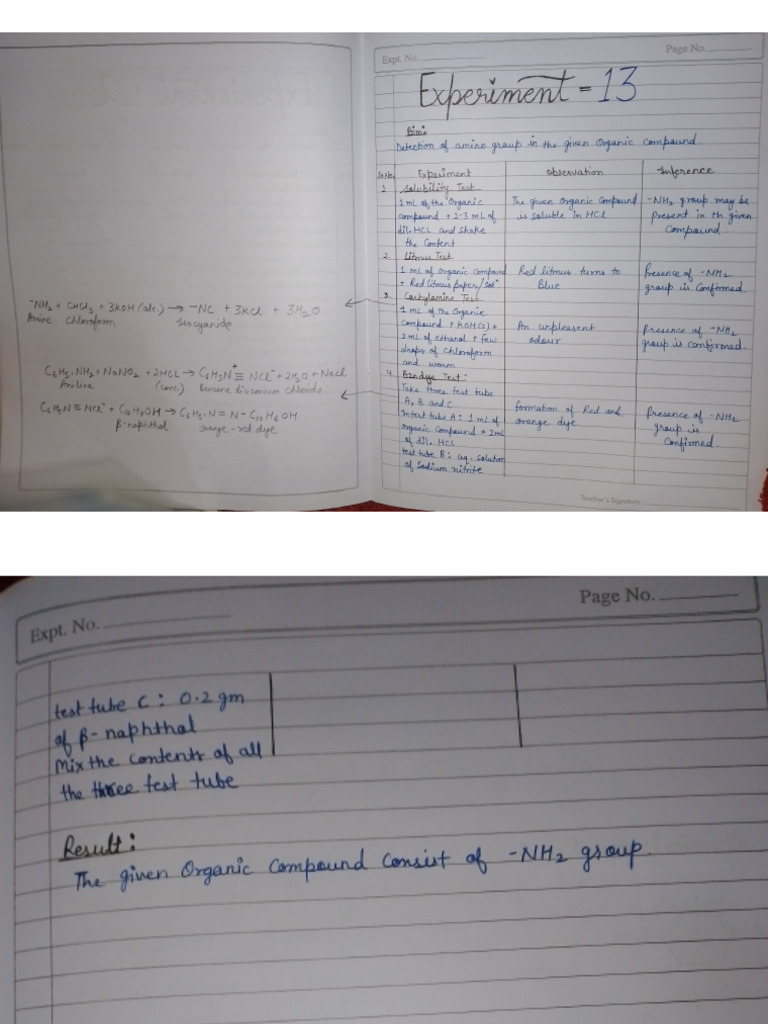 -NH2 + CHCl3 + 3KOH (alc.) → -NC + 3KCl + 3H2O
Amine Chloroform Isocyanide
C6H5.NH2 + NaNO2 + 2HCl → C6H5N+≡NCl- + 2H2O + NaCl
Aniline (conc.) Benzene diazonium chloride
C6H5N≡NCl- + C10H7OH → C6H5-N=N-C10H6OH
β-naphthol orange-red dye
Expt. No.
Page No.
Experiment = 13
Aim:
Detection of amino group in the given Organic compound.
Sr.No. Experiment Observation Inference
1 Solubility Test
1 mL of the Organic The given Organic Compound -NH2 group may be
compound + 2-3 mL of is soluble in HCl present in th given
dil. HCl and shake Compound
the Content
2. Litmus Test
1 mL of Organic compound Red litmus turns to Presence of -NH2
+ Red litmus paper/sol^n Blue group is Confirmed.
3. Carbylamine Test
1 mL of the Organic
compound + KOH(s) + An unpleasent Presence of -NH2
2mL of ethanol + few odour group is confirmed.
drops of Chloroform
and warm
4. Azodye Test:
Take three test tube
A, B and C
In test tube A: 1 mL of formation of Red and Presence of -NH2
organic Compound + 2mL orange dye group is
of dil. HCl Confirmed.
test tube B: aq. solution
of Sodium nitrite
Teacher's Signature
Expt. No.
Page No.
test tube C: 0.2 gm
of β-naphthal
Mix the contents of all
the three test tube
Result:
The given Organic Compound Consist of -NH2 group.